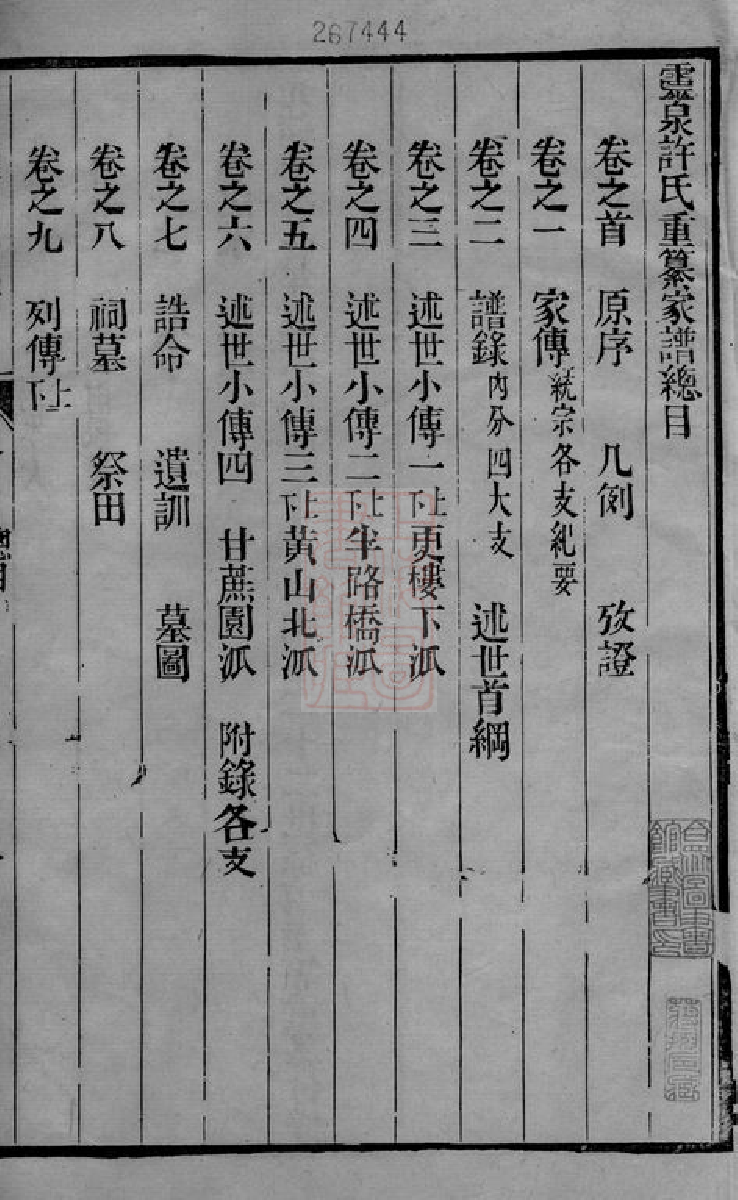 267444
靈泉許氏重纂家譜總目
卷之首 原序 凡例 攷證
卷之一 家傳 統宗各支紀要
卷之二 譜錄 內分四大支 述世首綱
卷之三 述世小傳一 上下 更樓下派
卷之四 述世小傳二 上下 半路橋派
卷之五 述世小傳三 上下 黃山北派
卷之六 述世小傳四 甘蔗園派 附錄各支
卷之七 誥命 遺訓 墓圖
卷之八 祠墓 祭田
卷之九 列傳 上下